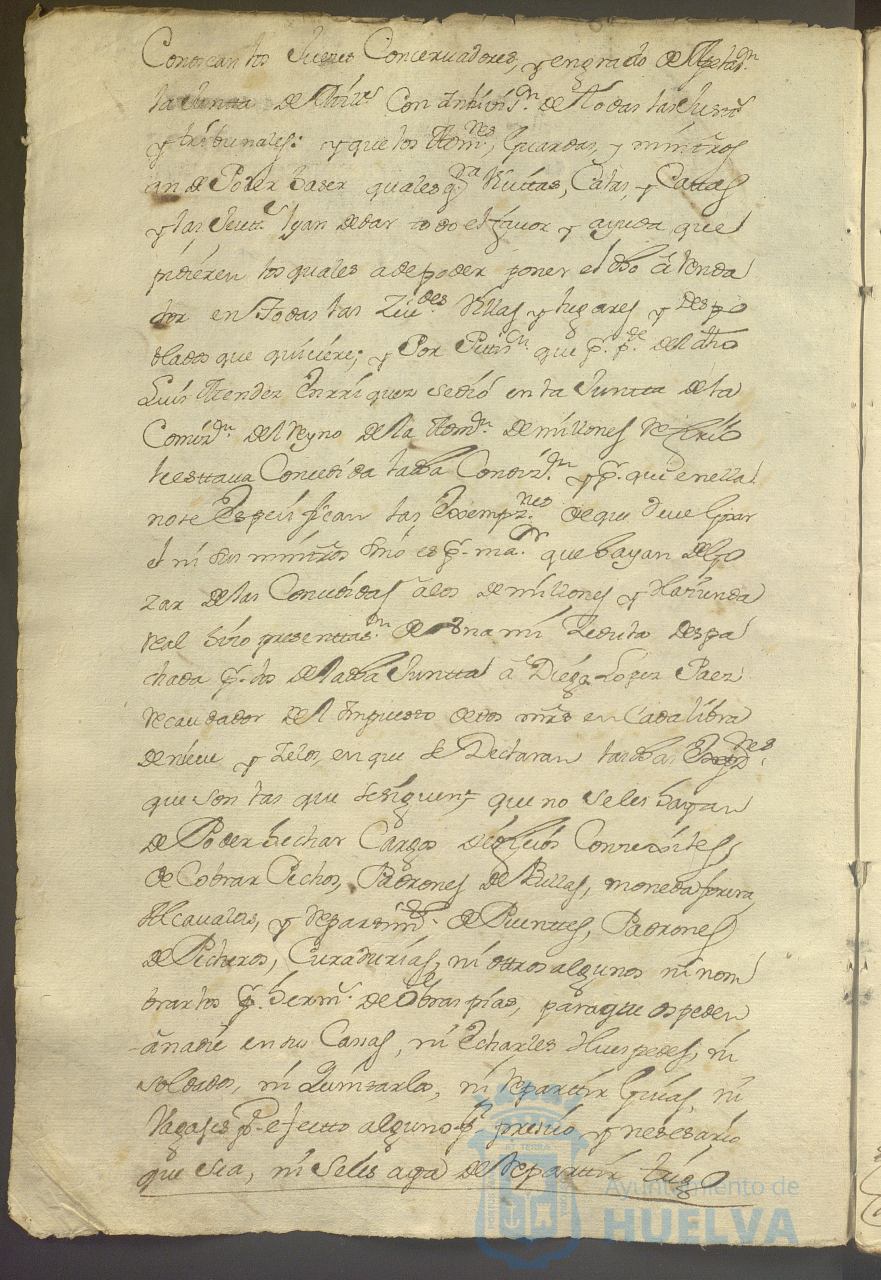 Conoscan los Jueses Conservadores, y en grado de Apelazⁿ
la Junta de Mill.ˢ Con Inhiviz.ⁿ de todas las Just.ˢ
y tribunales: y que los Adm.ʳᵉˢ, Guardas, y ministros
an de Poder haser qualesq.ʳᵃ Visitas, Catas, y Calas
y las Just.ˢ le an de dar todo el favor y ayuda que
pidieren los quales a de poder poner el dho Arrenda
dor en todas las Ziu.ᵈᵉˢ Villas y lugares y despo
blados que quisiere; y Por Petiz.ⁿ que p.ʳ p.ᵗᵉ del dho
Luis Mendez Enrriquez se dió en la Juntta de la
Comiz.ⁿ del Reyno de la Adm.ⁿ de millones refirió
le esttava Concedida la dha Condiz.ⁿ y p.ʳ que en ella
no se Especifican las Exempz.ⁿᵉˢ de que deve Gozar
él ni sus ministros sino es p.ʳ ma.ʳ que hayan de go
zar de las Concedidas a los de millones y Hazienda
real hizo presenttaz.ⁿ de una mi Zedula despa
chada p.ʳ lo de la dha Juntta a Diego Lopez Paez
recaudador del Impuesto de dos mrs en Cada libra
de nieve y Yelos, en que se Declaran las dhas Exempz.ⁿᵉˢ
que son las que se siguen, que no se les hayan
de Poder hechar Cargos de ofisios Consexiles,
de Cobrar Pechos, Padrones de Bullas, moneda forera,
Alcavalas, y repartim.ᵗᵒˢ de Puentes, Padrones
de Pecheros, Curadurías, ni ottros algunos ni nom
brarlos p.ʳ Herm.ˢ de Obras pías, para que ospeden
a nadie en sus Casas, ni Echarles Huespedes, ni
soldados, ni Quinttarlos, ni repartir Guias, ni
Vagajes p.ʳ efectto alguno p.ʳ presiso y nesesario
que sea, ni se les aya de repartir trigo
Ayuntamiento de
HUELVA